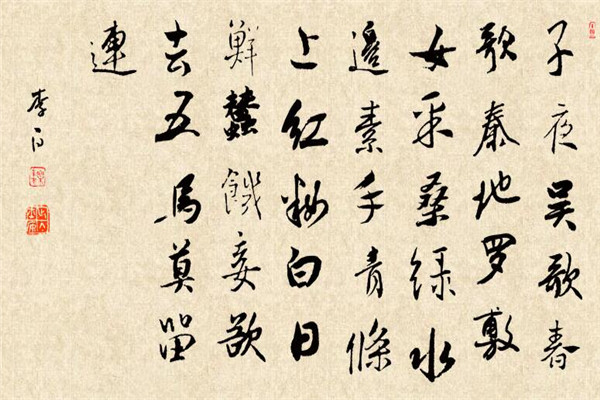 子夜吴歌春
歌秦地罗敷
女采桑绿水
邊素手青條
上红白日
鮮蠶饑妾欲
去五馬莫留
連
李白